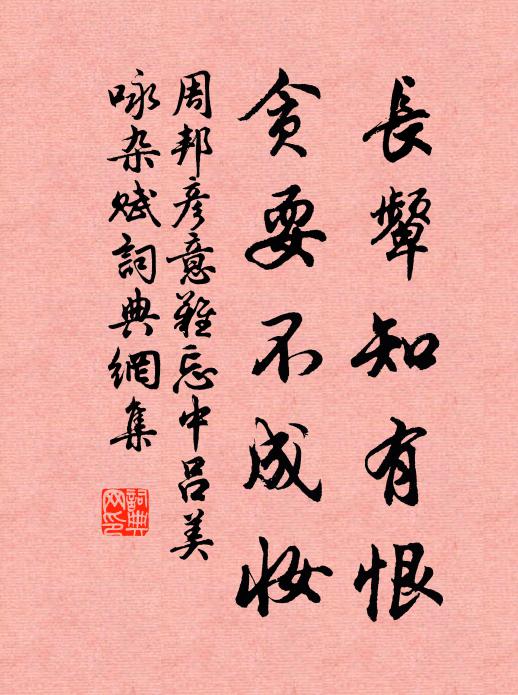 長颦知有恨
贪耍不成妆
周邦彦意難忘中吕美
咏杂赋詞典網集
詞典网印